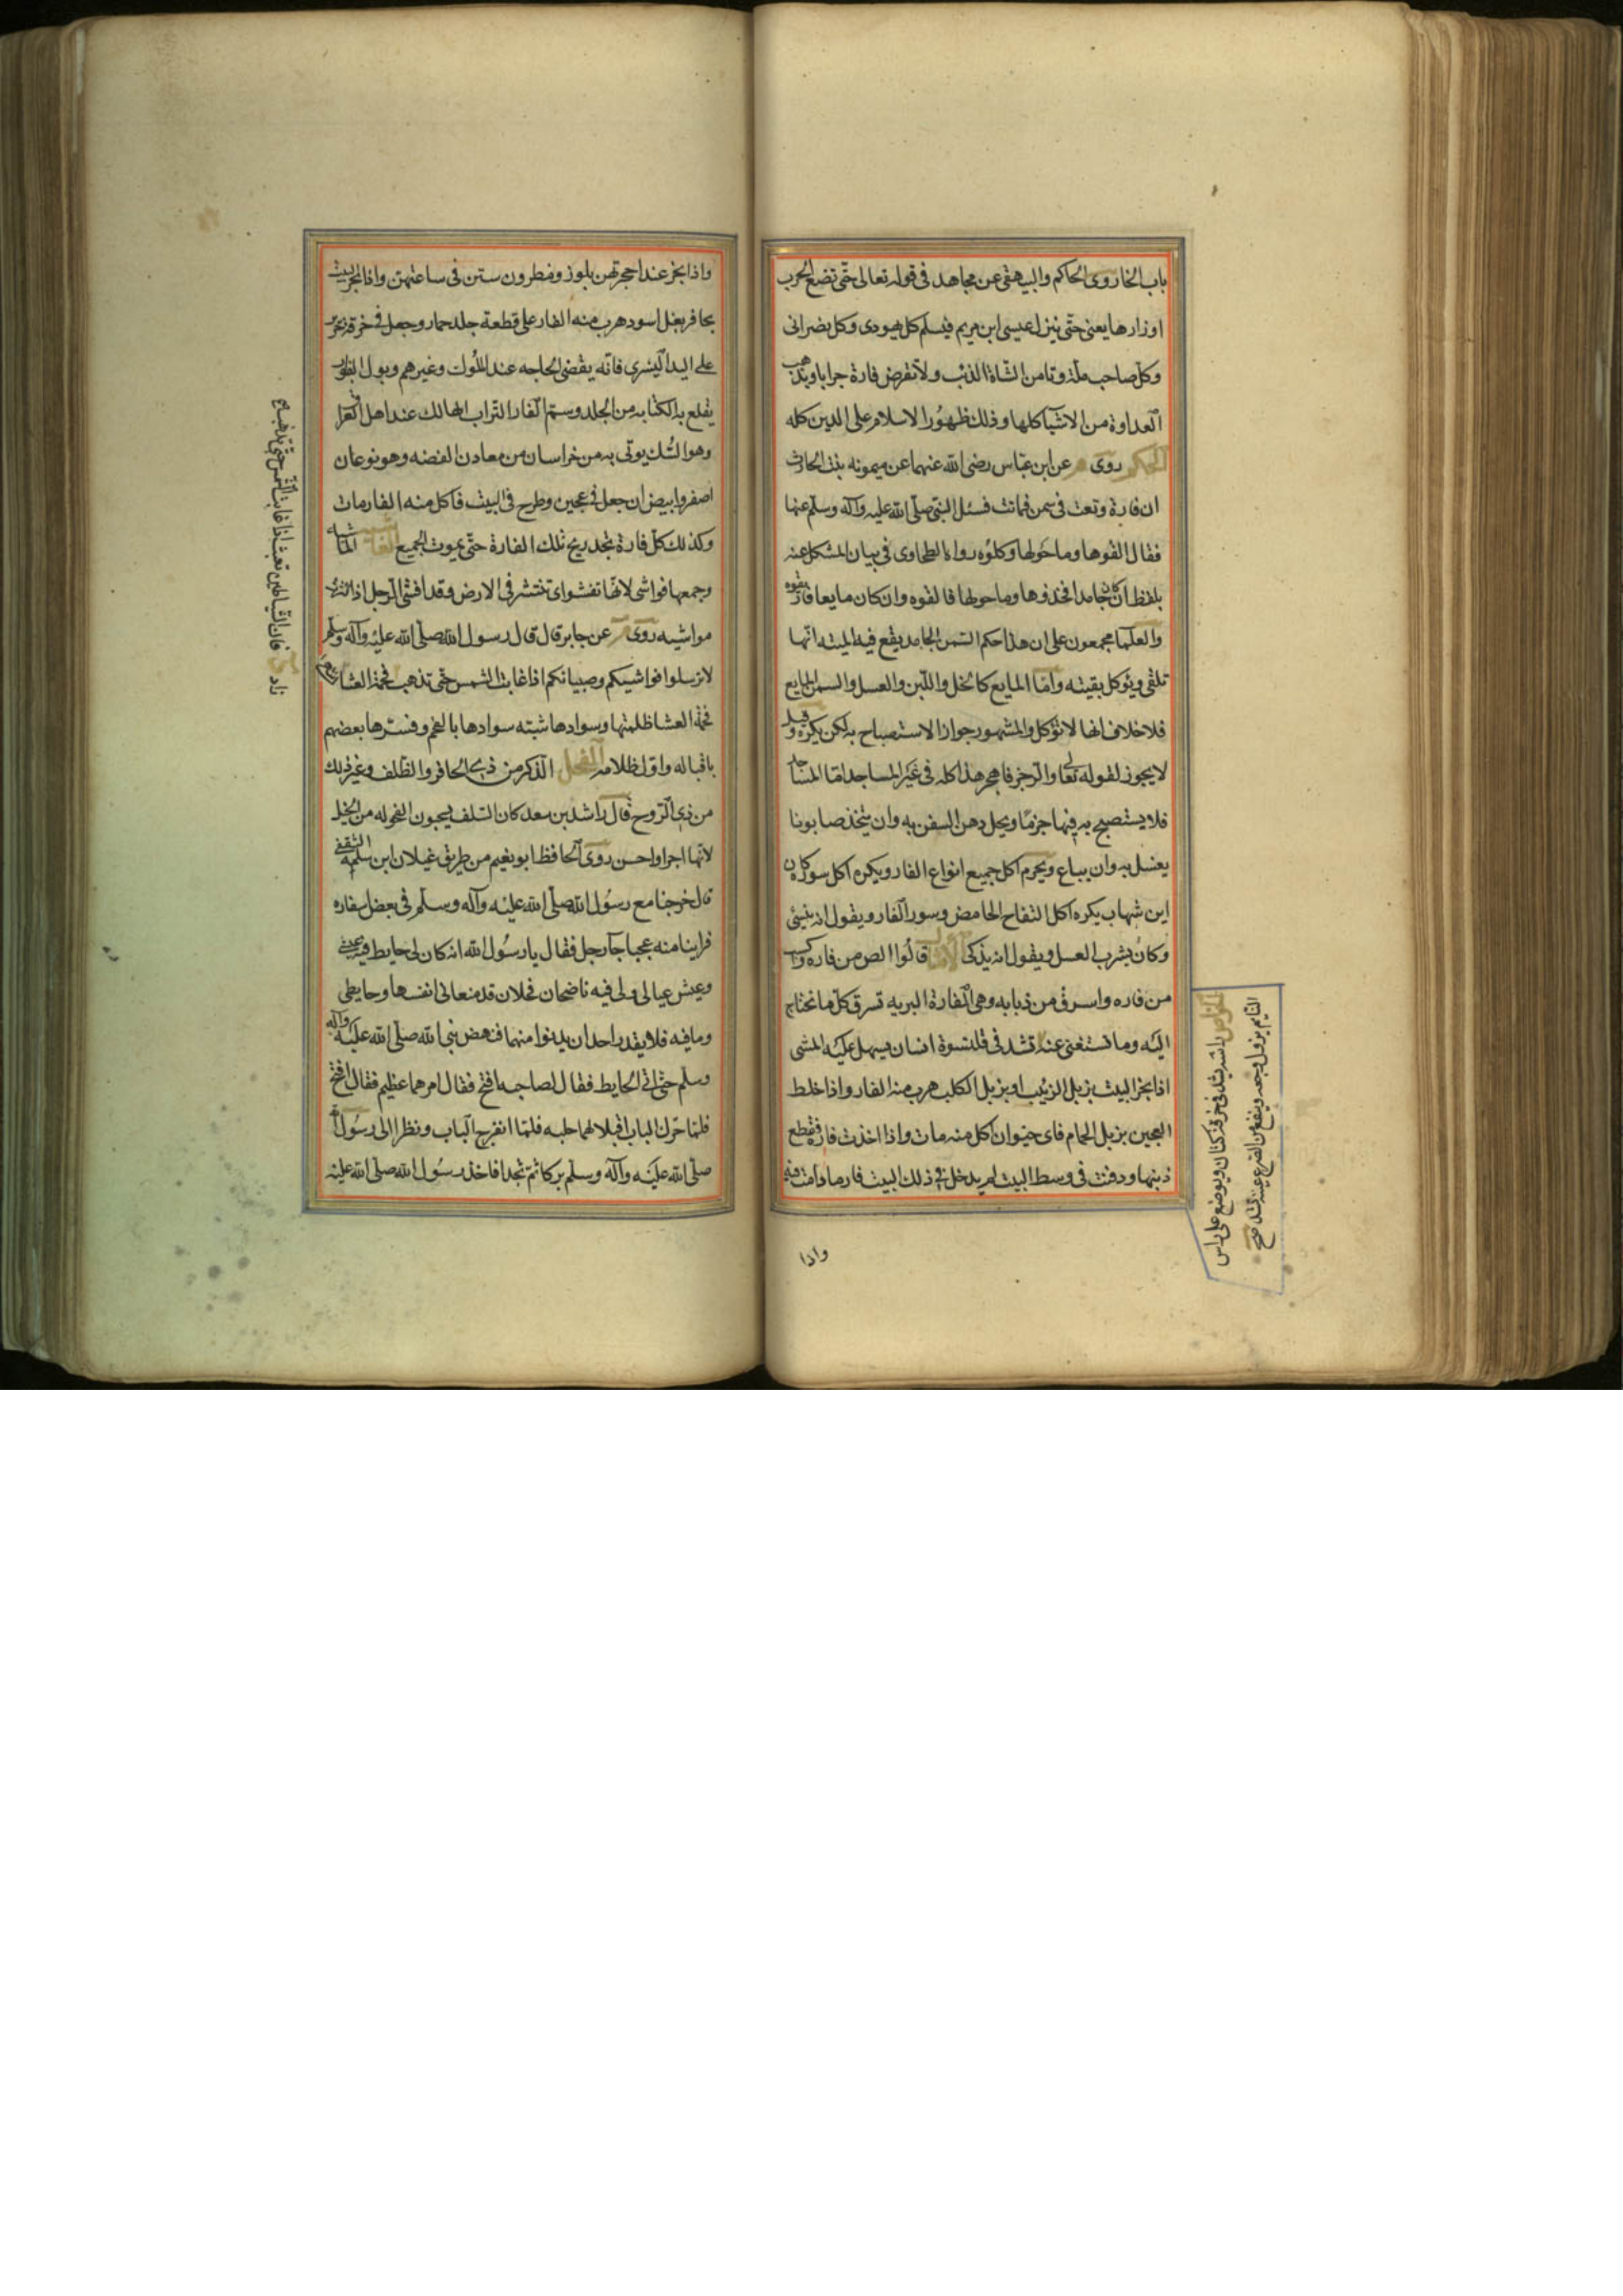 باب الخا روى الحاكم والبيهقى عن مجاهد فى قوله تعالى حتّى تضع الحرب
اوزارها يعنى حتّى ينزل عيسى ابن مريم فيسلم كل يهودى وكل نصرانى
وكلّ صاحب ملّة وتامن الشاة الذئب ولا تقرض فارة جرابا وتذهب
العداوة من الاشيا كلها وذلك ظهور الاسلام على الدين كله
الحكم روى عن ابن عبّاس رضى الله عنهما عن ميمونه بنت الحارث
ان فارة وقعت فى سمن فماتت فسئل النبّى صلّى الله عليه وآله وسلّم عنها
فقال القوها وما حولها وكلوه رواه الطحاوى فى بيان المشكل عنه
بلفظ ان كان جامدا فخذوها وما حولها فالقوه وان كان مايعا فلا تقربوه
والعلما مجمعون على ان هذا حكم السّمن الجامد يقع فيه الميته انّها
تلقى ويؤكل بقيته وامّا المايع كالخل واللبن والعسل والسمن المايع
فلا خلاف انها لا تؤكل والمشهور جواز الاستصباح به لكن يكره وقيل
لا يجوز لقوله تعالى والرّجز فاهجر هذا كله فى غير المساجد امّا المساجد
فلا يستصبح به فيها جزمًا ويحل دهن السفن به وان يتخذ صابونا
يغسل به وان يباع ويحرم اكل جميع انواع الفار ويكره اكل سوره كان
ابن شهاب يكره اكل التفاح الحامض وسور الفار ويقول انه ينسى
وكان يشرب العسل ويقول انه يذكى الامثال قالوا الص من فاره واكسب
من فاره واسرق من ذبابه وهى الفارة البريه تسرق كلّ ما تحتاج
اليه وما تستغنى عنه تشد فى قلنسوة انسان يسهل عليه المشى
اذا بخر البيت بزبل الزئيب او بزبل الكلب هرب منه الفار واذا خلط
العجين بزبل الحمام فاى حيوان اكل منه مات واذا اخذت فارة فقطع
ذنبها ودفنت فى وسط البيت لم يدخل فى ذلك البيت فار ما دامت فيه
واذا
الخواص راسه يشد فى خرقة كتان ويوضع على راس
النايم يزول وجعه وينفع من الصرع عينه تشد صح
واذا بخر عند احجرتهن بلوز ونطرون ستن فى ساعتهن واذا بخر البيت
بحافر بغل اسود هرب منه الفار على قطعة جلد حمار وجعل فى خرقة
على اليد اليسرى فانّه يقضى الحاجه عند الملوك وغيرهم وبول الفار
يقلع به الكتابه من الجلد وسمّ الفار التراب الهالك عند اهل العراق
وهو الشك يوتى به من خراسان من معادن الفضه وهو نوعان
اصفر وابيض ان جعل فى عجين وطرح فى البيت فاكل منه الفار مات
وكذلك كلّ فارة تجد ريح تلك الفارة حتّى يموت الجميع الفاشيه الماشيه
وجمعها فواشى لانها تفشو اى تنتشر فى الارض وقد افشى الرجل اذا كثرت
مواشيه روى عن جابر قال قال رسول الله صلّى الله عليه وآله وسلّم
لا ترسلوا فواشيكم وصبيانكم اذا غابت الشمس حتّى تذهب فحمة العشا
فحمة العشا ظلمتها وسوادها شبته سوادها بالفحم وفسّرها بعضهم
باقباله واوّل ظلامه الفحل الذكر من ذى الحافر والظلف وغير ذلك
من ذى الرّوح قال راشد بن سعد كان السّلف يحبون الفحوله من الخيل
لانّها اجرا واحسن روى الحافظ ابو نعيم من طريق غيلان ابن سلمه الثقفى
قال خرجنا مع رسول الله صلّى الله عليه وآله وسلّم فى بعض اسفاره
فراينا منه عجبا جآ رجل فقال يا رسول الله انه كان لى حايط فيه عيشى
وعيش عيالى ولى فيه ناضحان فحلان قد منعانى انفسهما وحايطى
وما فيه فلا يقدر احد ان يدنوا منهما فنهض نبى الله صلّى الله عليه وآله
وسلّم حتّى اتى الحايط فقال لصاحبه افتح فقال امرهما عظيم فقال افتح
فلمّا حرّك الباب اقبلا لهما جلبه فلمّا انفرج الباب ونظرا الى رسول الله
صلّى الله عليه وآله وسلّم بركا ثمّ سجدا فاخذ رسول الله صلّى الله عليه
فان الشياطين تعبث اذا غابت الشمس حتى تذهب
زاد